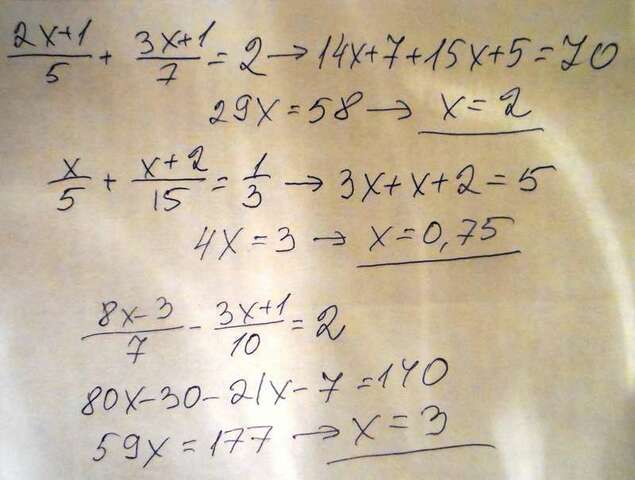 (2x+1)/5 + (3x+1)/7 = 2 → 14x+7+15x+5=70
29x=58 → x=2
x/5 + (x+2)/15 = 1/3 → 3x+x+2=5
4x=3 → x=0,75
(8x-3)/7 - (3x+1)/10 = 2
80x-30-21x-7=140
59x=177 → x=3